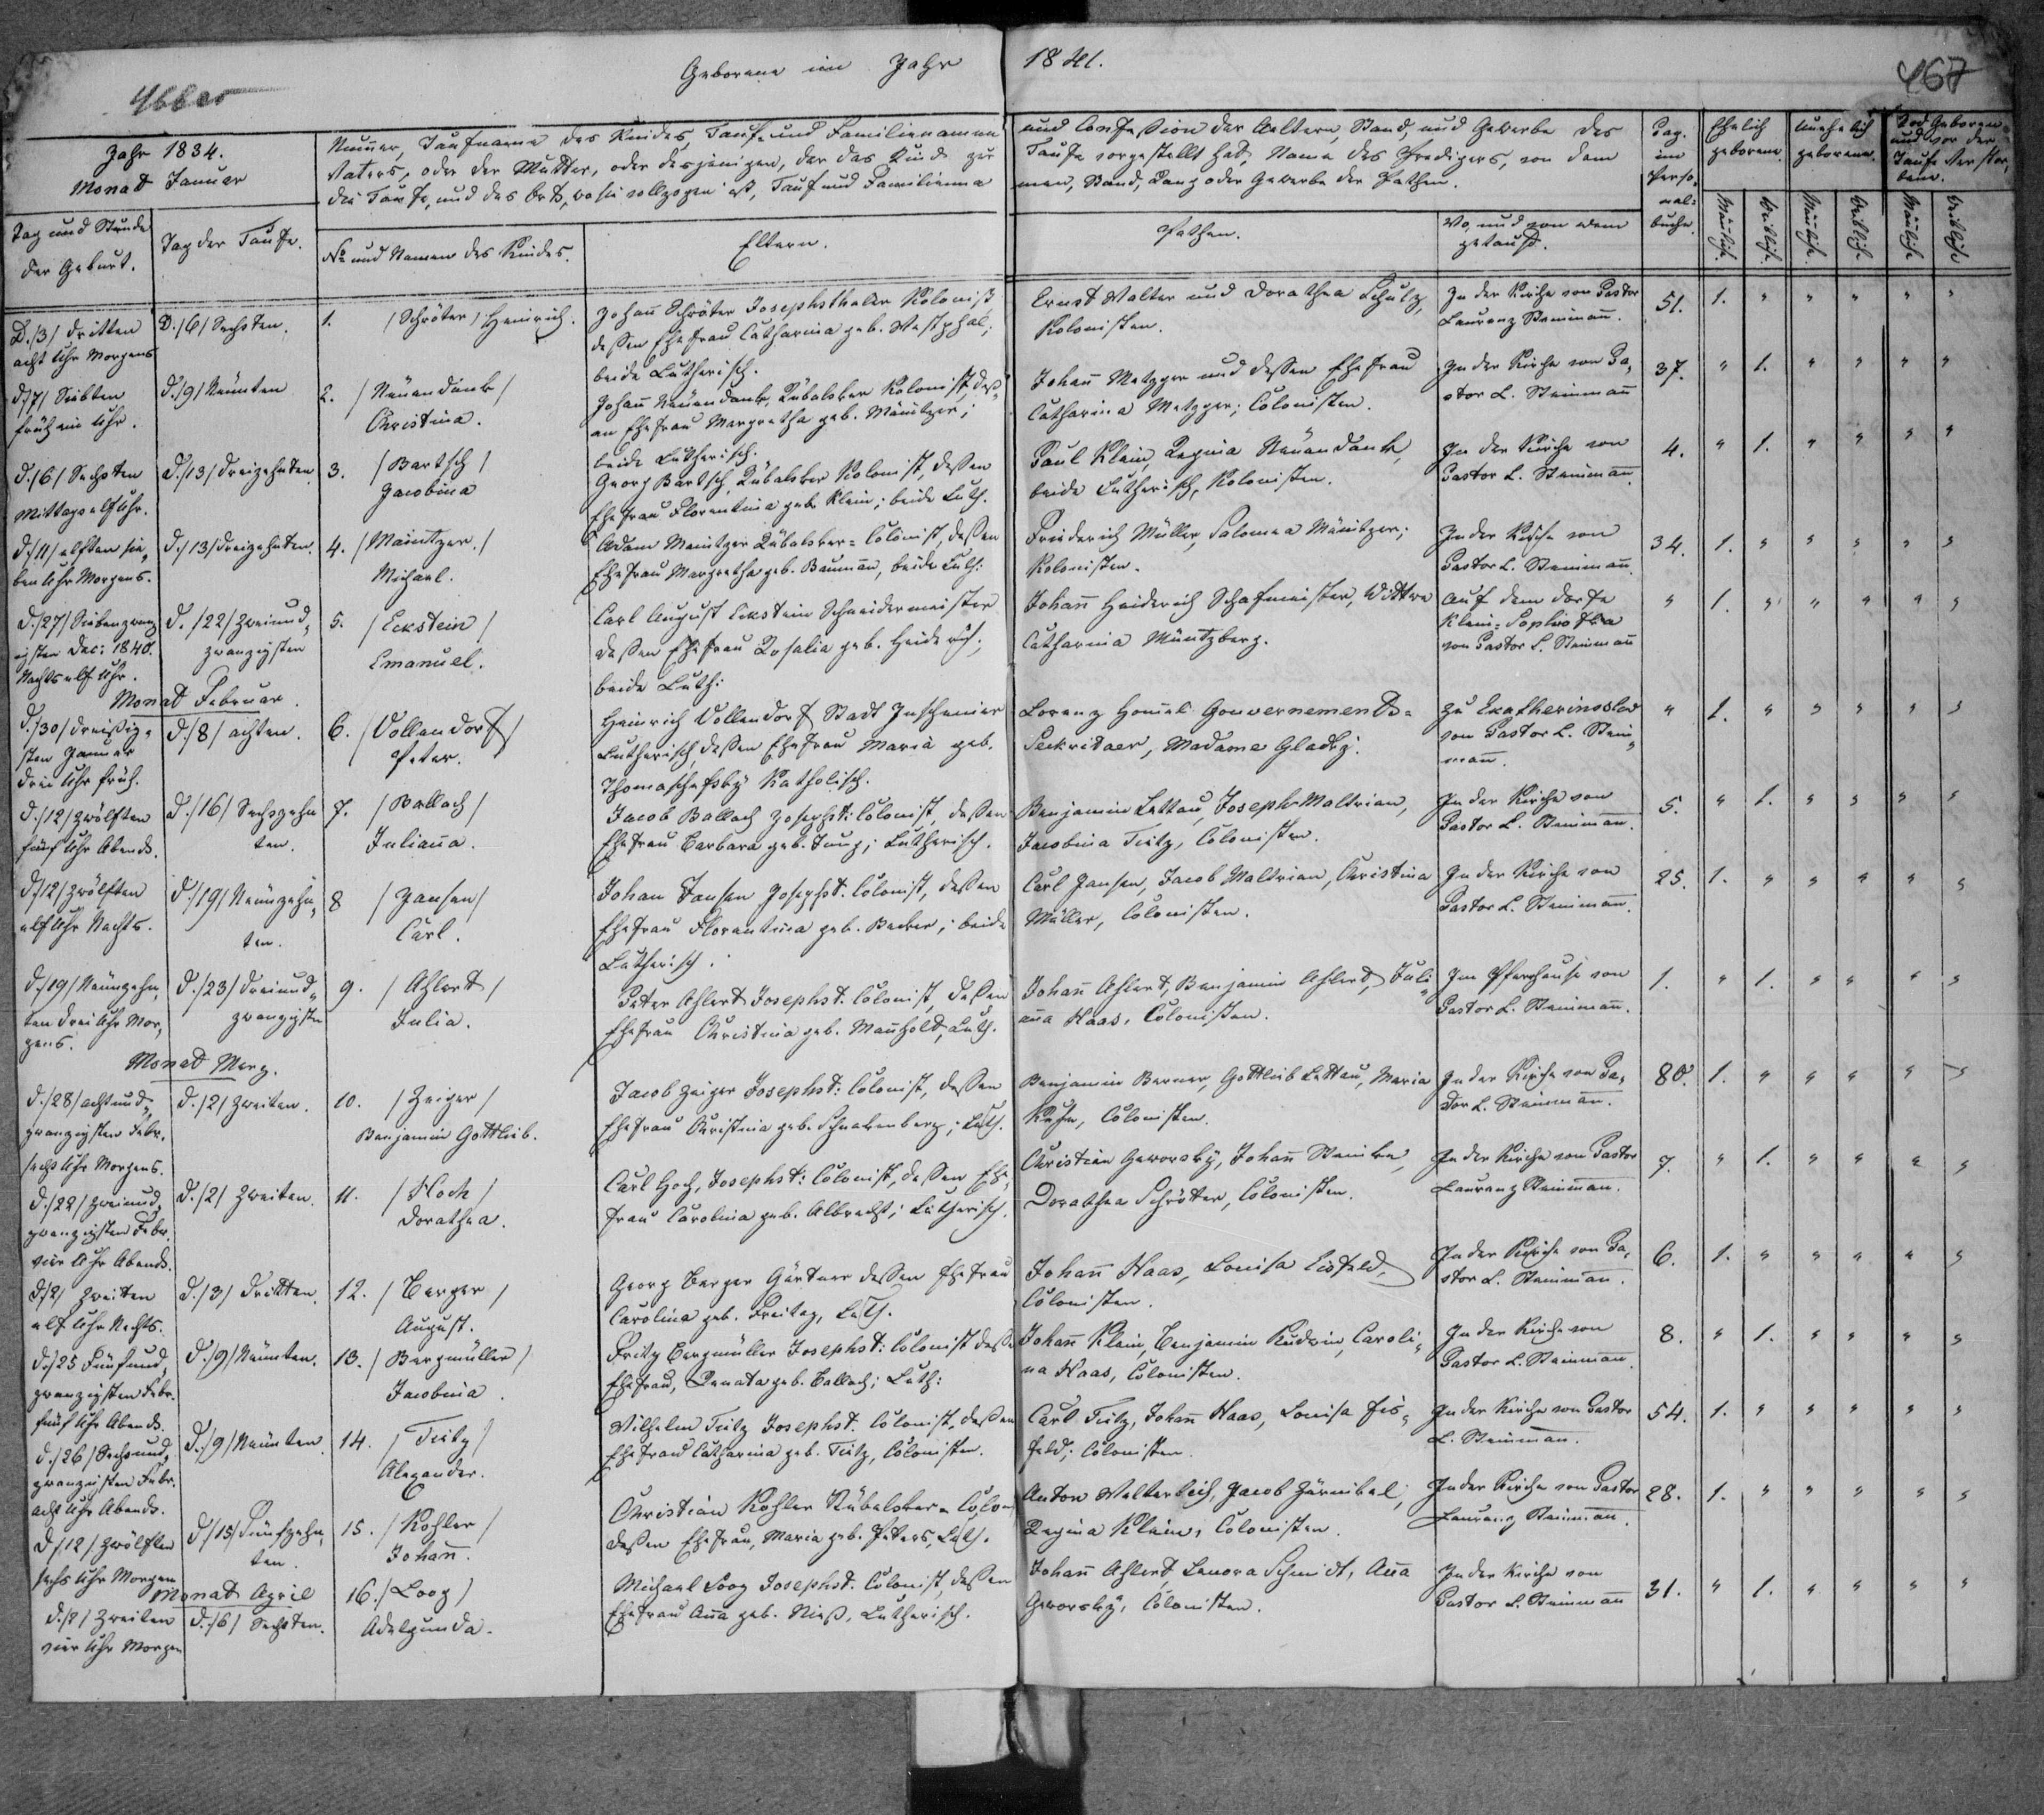 Geborene im Jahr 1841.
466
467
Jahr 1834.
Monat Januar
Tag und Stunde der Geburt.
Tag der Taufe.
Nummer, Taufname des Kindes, Tauf- und Familienamen und Confession der Aeltern, Stand, und Gewerbe des
Vaters, oder der Mutter, oder desjenigen, der das Kind zur Taufe vorgestellt hat. Name des Predigers, von dem
die Taufe, und des Orts, wo sie vollzogen ist, Tauf und Familienna men, Stand, Rang oder Gewerbe der Pathen.
No und Namen des Kindes.
Eltern.
Pathen.
Wo, und von wem getauft.
Pag. im Perso, nal: buche.
Ehelich geborene.
Unehelich geborene.
Tod Geborene und vor der Taufe verstor, bene.
Mänlich. Weiblich. Mänlich. Weiblich. Mänlich Weiblich
D. /3/ dritten
acht Uhr Morgens
D. /6/ Sechsten.
1. /Schröter/ Heinrich.
Johan̄ Schröter Josephsthaler Kolonist
dessen Ehefrau Catharina geb. Westphal;
beide Lutherisch.
Ernst Walter und Dorathea Schulz,
Kolonisten.
In der Kirche von Pastor
Laurenz Steinman̄.
51. 1. " " " " "
d /7/ Siebten
früh ein Uhr.
d. /9/ Neunten
2. /Neuendank/
Christina.
Johan̄ Neuendank, Rübalsker Kolonist, deß
en Ehefrau Margretha geb. Mäintzer;
beide Lutherisch.
Johan̄ Metzger und dessen Ehefrau
Catharina Metzger; Colonisten.
In der Kirche von Pa,
stor L. Steinman̄
37. " 1. " " " "
d. /6/ Sechsten
Mittags elf Uhr.
d. /13/ dreizehnten
3. /Bartsch/
Jacobina
Georg Bartsch, Rübalsker Kolonist, dessen
Ehefrau Florentina geb. Klein; beide Luth.
Paul Klein, Regina Neuendank,
beide Lutherisch, Kolonisten.
In der Kirche von
Pastor L. Steinman̄.
4. " 1. " " " "
d. /11/ elften sie,
ben Uhr Morgens.
d. /13/ dreizehnten.
4. /Maintzer./
Michael.
Adam Maintzer Rübalsker-Colonist, dessen
Ehefrau Margretha geb. Bauman̄, beide Luth:
Friederich Müller, Salomea Mäintzer;
Kolonisten.
In der Kirche von
Pastor L. Steinman̄.
34. 1. " " " " "
d. /27/ Siebenzwanz
igsten Dec: 1840.
Nachts elf Uhr.
d. /22/ Zweiund,
zwanzigsten
5. /Eckstein/
Emanuel.
Carl August Eckstein Schneidermeister
dessen Ehefrau Rosalia geb. Heiderich;
beide Luth:
Johan̄ Heiderich Schafmeister, Wittwe
Catharina Müntzberg.
Auf dem Dorfe
Klein-
von Pastor L. Steinman̄
" 1. " " " " "
Monat Februar.
d. /30/ dreißig,
sten Januar
drei Uhr früh.
d. /8/ achten.
6. /Vollendorf/
Peter.
Heinrich Vollendorf Stadt Inschenier
Lutherisch, dessen Ehefrau Maria geb.
Thomaschefsky Katholisch.
Lorenz Hom̄el Gouvernements-
Seckridaer, Madame Gladky.
zu Ekatherinoslow
von Pastor L. Stein
man̄.
" 1. " " " " "
d. /12/ zwölften
fünf Uhr Abends.
d. /16/ Sechszehn
ten.
7. /Ballach/
Julian̄a.
Jacob Ballach Josephst: Colonist, dessen
Ehefrau Barbara geb. Jung; Lutherisch.
Benjamin Lettau, Joseph Maltrian,
Jacobina Tietz, Colonisten.
In der Kirche von
Pastor L. Steinman̄.
5. " 1. " " " "
d /12/ zwölften
elf Uhr Nachts.
d. /19/ Neunzehn,
ten.
8 /Jansen/
Carl.
Johan Jansen Josephst. Colonist, dessen
Ehefrau Florentina geb. Becker; beide
Lutherisch.
Carl Jansen, Jacob Maltrian, Christina
Müller, Colonisten.
In der Kirche von
Pastor L. Steinman̄.
25. 1. " " " " "
d. /19/ Neunzehn,
ten drei Uhr Mor,
gens.
d. /23/ dreiund,
zwanzigsten
9. /Ahlert/
Julia.
Peter Ahlert Josephst. Colonist, dessen
Ehefrau Christina geb. Man̄hold, Luth.
Johan̄ Ahlert, Benjamin Ahlert, Juli
an̄a Haas, Colonisten.
Im Pfarrhause von
Pastor L. Steinman̄.
1. " 1. " " " "
Monat Merz.
d. /28/ achtund,
zwanzigsten Febr.
sechs Uhr Morgens.
d. /2/ zweiten.
10. /Zeiger/
Benjamin Gottlieb.
Jacob Zeiger Josephst: Colonist, dessen
Ehefrau Christina geb. Schnakenberg; Luth.
Benjamin Berner, Gottlieb Lettau, Maria
Kuhn, Colonisten.
In der Kirche von Pa,
stor L. Steinman̄.
80. 1. " " " " "
d. /22/ zweiund,
zwanzigsten Febr.
vier Uhr Abends.
d. /2/ zweiten.
11. /Hoch/
Dorathea.
Carl Hoch, Josephst: Colonist, dessen Ehe,
frau Carolina geb. Albrecht; Lutherisch.
Christian Geworsky, Johan̄ Steinke,
Dorathea Schröter, Colonisten.
In der Kirche von Pastor
Laurenz Steinman̄.
7. " 1. " " " "
d /2/ zweiten
elf Uhr Nachts.
d. /3/ dritten.
12. /Berger/
August.
Georg Berger Gärtner dessen Ehefrau
Carolina geb. Freitag, Luth.
Johan̄ Haas, Louisa Eisfeld,
Colonisten.
In der Kirche von Pa,
stor L. Steinman̄.
6. 1. " " " " "
d. /25 Fünfund,
zwanzigsten Febr.
fünf Uhr Abends.
d. /9/ Neunten.
13. /Bergmüller/
Jacobina.
Fritz Bergmüller Josephst: Colonist desse
Ehefrau, Renata geb. Ballach; Luth:
Johan̄ Klein, Benjamin Rudwin, Caroli,
na Haas, Colonisten.
In der Kirche von
Pastor L. Steinman̄.
8. " 1. " " " "
d. /26/ Sechsund,
zwanzigsten Febr.
acht Uhr Abends.
d. /9/ Neunten.
14. /Tietz/
Alexander.
Wilhelm Tietz Josephst. Colonist, dessen
Ehefrau Catharina geb. Tietz, Colonisten.
Carl Tietz, Johan̄ Haas, Louisa Eis,
feld; Colonisten.
In der Kirche von Pastor
L. Steinman̄.
54. 1. " " " " "
d /12/ zwölften
sechs Uhr Morgen
d. /15/ Fünfzehn,
ten.
15. /Kohler/
Johan̄.
Christian Kohler Rübalsker-Colon
dessen Ehefrau, Maria geb. Peters, Luth.
Anton Walterlich, Jacob
Regina Klein, Colonisten.
In der Kirche von Pastor
Laurenz Steinman̄.
28. 1. " " " " "
Monat April
d. /2/ zweiten
vier Uhr Morgen
d. /6/ Sechsten.
16. /Loog/
Adelgunda.
Michael Loog Josephst. Colonist, dessen
Ehefrau An̄a geb. Nieß, Lutherisch.
Johan̄ Ahlert, Lenora Schmidt, An̄a
Geworsky, Colonisten.
In der Kirche von
Pastor L. Steinman̄
31. " 1. " " " "